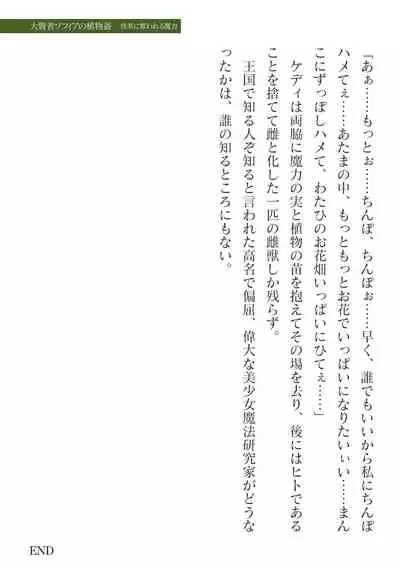 大賢者ソフィアの植物姦　怪草に奪われる魔力
「あぁ……もっとぉ……ちんぽ、ちんぽぉ……早く、誰でもいいから私にちんぽ
ハメてぇ……あたまの中、もっともっとお花でいっぱいになりたいぃい……まん
こにずっぽしハメて、わたひのお花畑いっぱいにひてぇ……」
ケディは両脇に魔力の実と植物の苗を抱えてその場を去り、後にはヒトである
ことを捨てて雌と化した一匹の雌獣しか残らず。
王国で知る人ぞ知ると言われた高名で偏屈、偉大な美少女魔法研究家がどうな
ったかは、誰の知るところにもない。
END